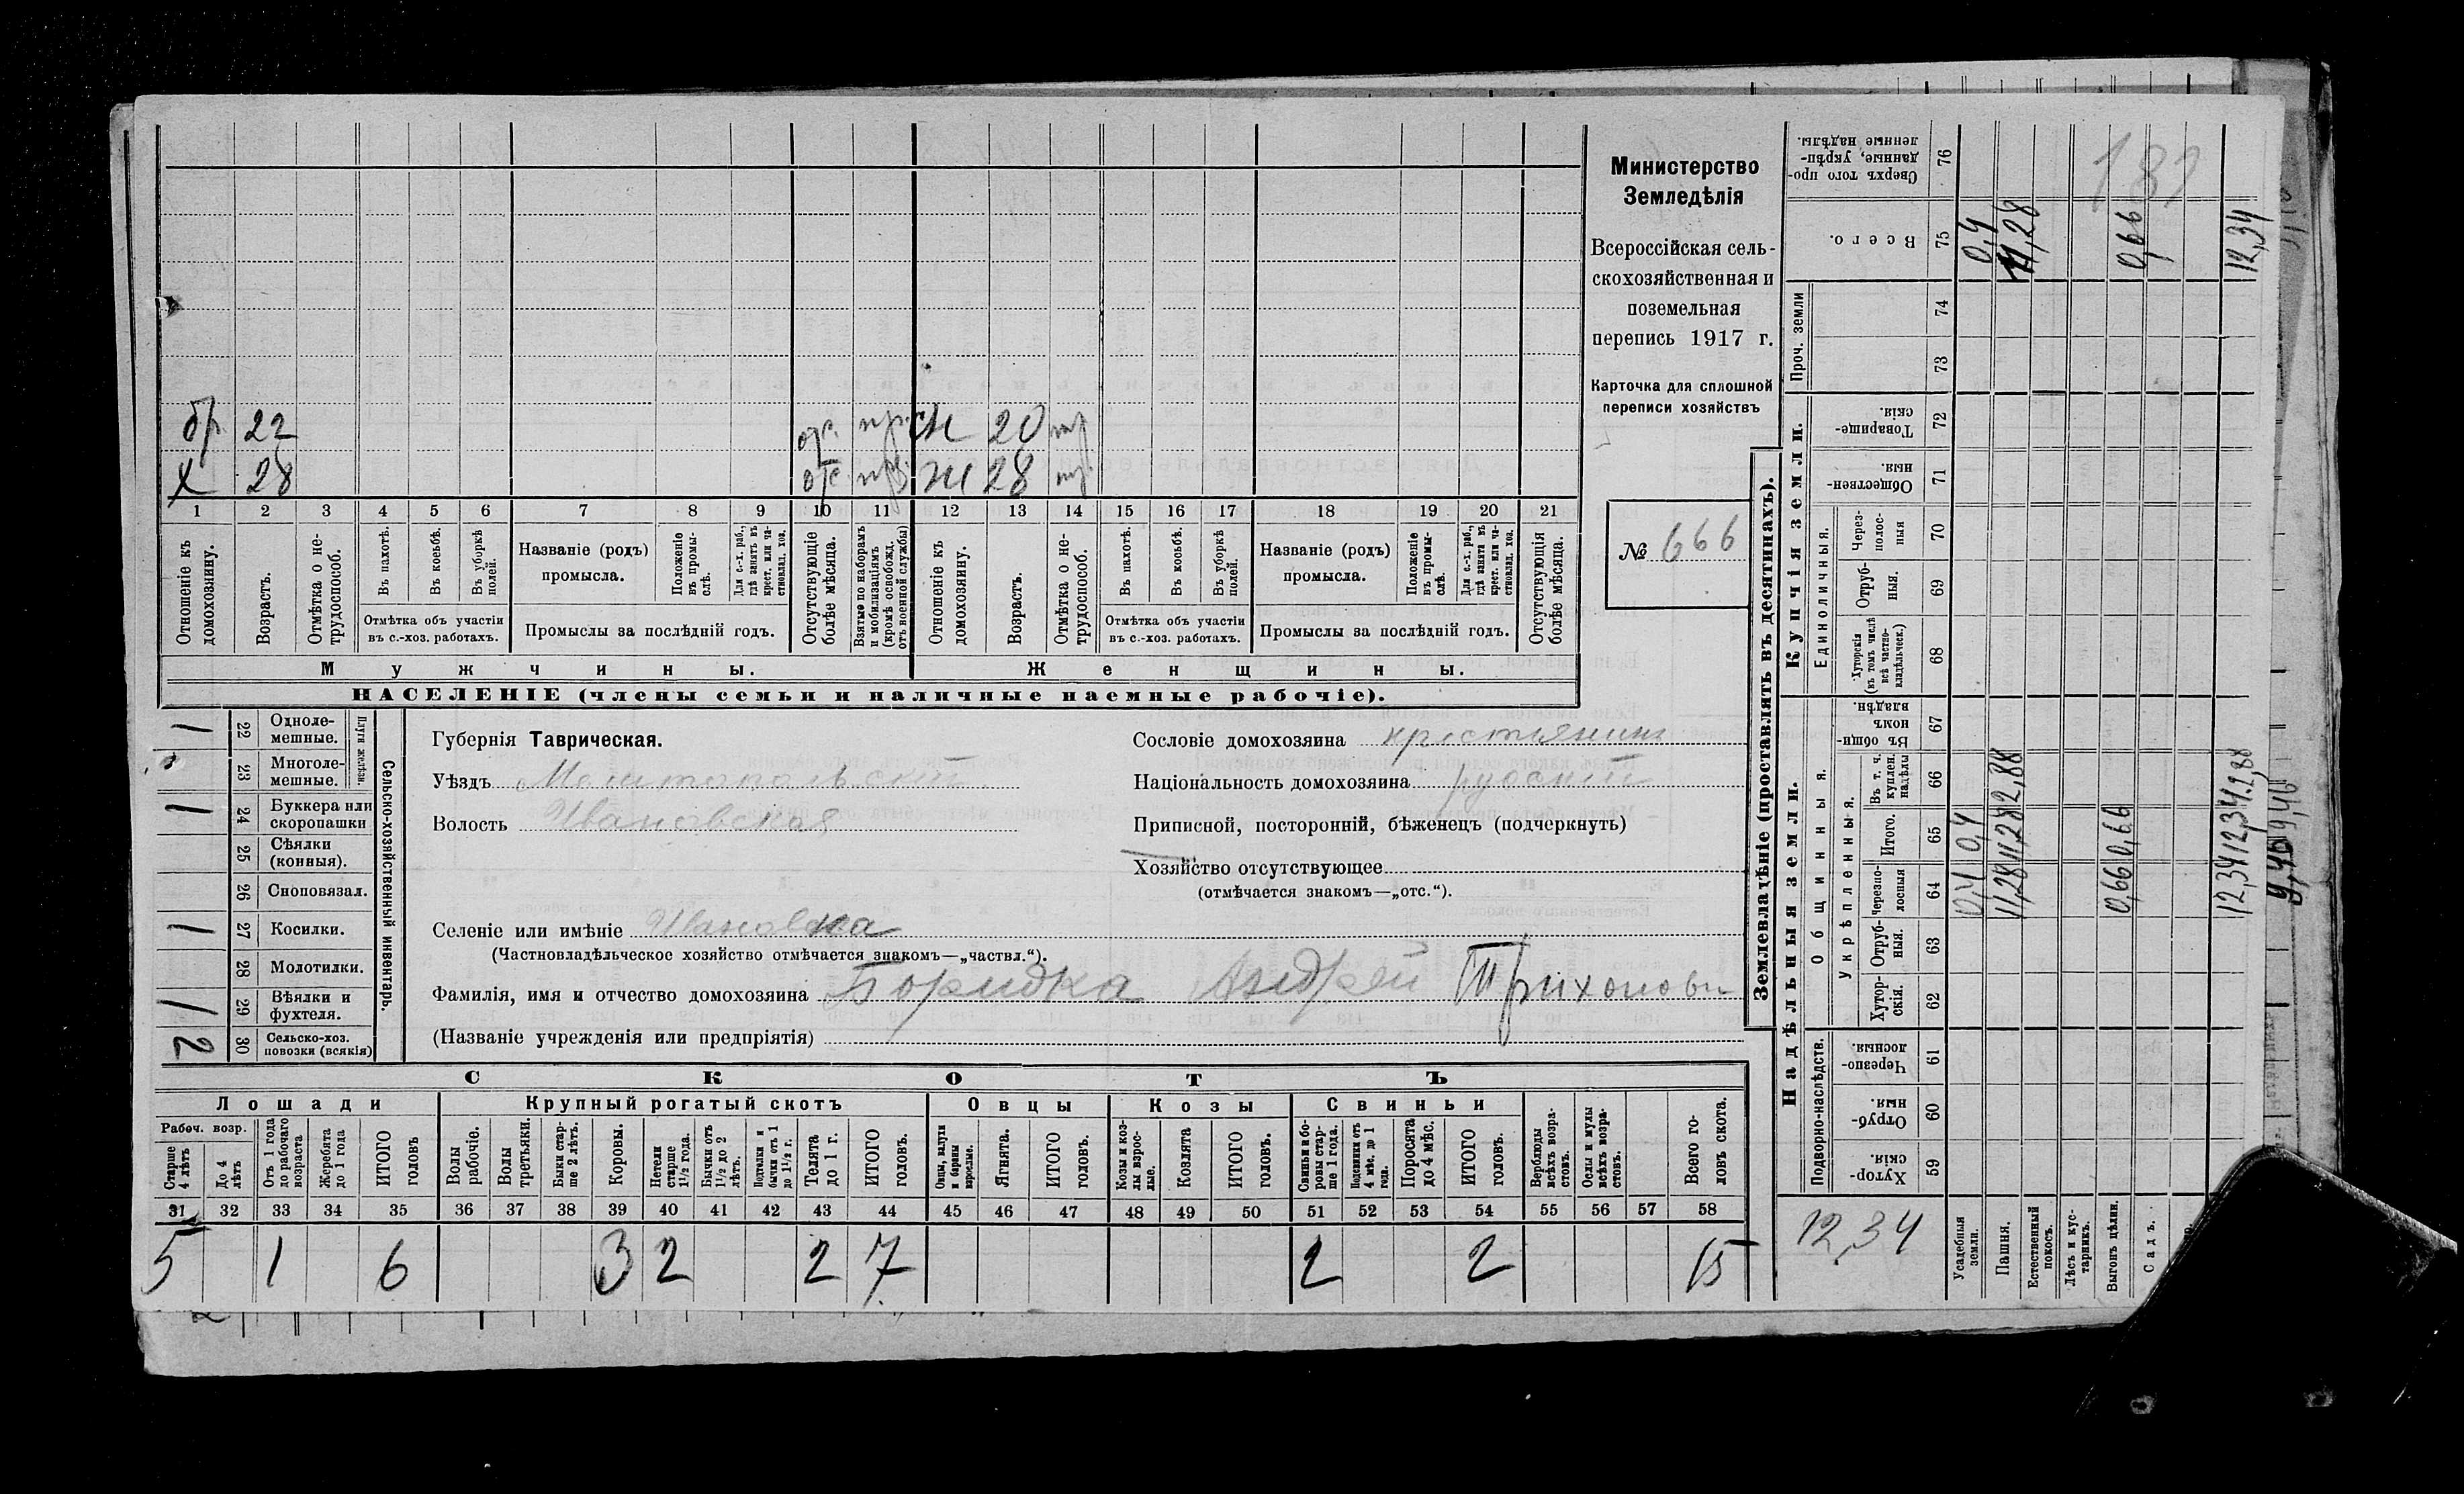 Министерство
Земледѣлія
Всероссійская сель-
скохозяйственная и
поземельная
перепись 1917 г.
Карточка для сплошной
переписи хозяйствъ
№ 666
бр. 22 отс. 20
х 28 отс. ж 28
1 2 3 4 5 6 7 8 9 10 11 12 13 14 15 16 17 18 19 20 21
Отношеніе къ домохозяину.
Возрастъ.
Отмѣтка о не-трудоспособ.
Въ пахотѣ.
Въ косьбѣ.
Въ уборкѣ полей.
Отмѣтка объ участіи
въ с.-хоз. работахъ.
Названіе (родъ)
промысла.
Положеніе въ промы-слѣ.
Для с.-х. раб., гдѣ занятъ въ крест. или ча-стновлад. хоз.
Промыслы за послѣдній годъ.
Отсутствующіе болѣе мѣсяца.
Взятые по наборамъ и мобилизаціямъ (кромѣ освобожд. отъ военной службы)
Отношеніе къ домохозяину.
Возрастъ.
Отмѣтка о не-трудоспособ.
Въ пахотѣ.
Въ косьбѣ.
Въ уборкѣ полей.
Отмѣтка объ участіи
въ с.-хоз. работахъ.
Названіе (родъ)
промысла.
Положеніе въ промы-слѣ.
Для с.-х. раб., гдѣ занята въ крест. или ча-стновлад. хоз.
Промыслы за послѣдній годъ.
Отсутствующія болѣе мѣсяца.
Мужчины. Женщины.
НАСЕЛЕНІЕ (члены семьи и наличные наемные рабочіе).
Сельско-хозяйственный инвентарь.
Плуги желѣзн.
1 22 Одноле-мешные.
23 Многоле-мешные.
1 24 Буккера или скоропашки
25 Сѣялки (конныя).
26 Сноповязал.
1 27 Косилки.
28 Молотилки.
1 29 Вѣялки и фухтеля.
2 30 Сельско-хоз. повозки (всякія)
Губернія Таврическая.
Уѣздъ
Волость Ивановская
Сословіе домохозяина крестьянинъ
Національность домохозяина русскій
Приписной, посторонній, бѣженецъ (подчеркнуть)
Хозяйство отсутствующее
(отмѣчается знакомъ—„отс.“).
Селеніе или имѣніе Ивановка
(Частновладѣльческое хозяйство отмѣчается знакомъ—„частвл.“).
Фамилія, имя и отчество домохозяина Андрей
(Названіе учрежденія или предпріятія)
СКОТЪ
Лошади Крупный рогатый скотъ Овцы Козы Свиньи
Рабоч. возр.
Старше 4 лѣтъ
До 4 лѣтъ
Отъ 1 года до рабочаго возраста
Жеребята до 1 года
ИТОГО головъ
Волы рабочіе.
Волы третьяки.
Быки стар-ше 2 лѣтъ.
Коровы.
Нетели старше 1½ года.
Бычки отъ 1½ до 2 лѣтъ.
Подтелки и бычки отъ 1 до 1½ г.
Телята до 1 г.
ИТОГО головъ.
Овцы, валухи и бараны взрослые.
Ягнята.
ИТОГО головъ.
Козы и коз-лы взрос-лые.
Козлята
ИТОГО головъ.
Свиньи и бо-ровы стар-ше 1 года.
Подсвинки отъ 4 мѣс. до 1 года.
Поросята до 4 мѣс.
ИТОГО головъ.
Верблюды всѣхъ возра-стовъ.
Ослы и мулы всѣхъ возра-стовъ.
Всего го-ловъ скота.
31 32 33 34 35 36 37 38 39 40 41 42 43 44 45 46 47 48 49 50 51 52 53 54 55 56 57 58
5 1 6 3 2 2 7 2 2 15
Землевладѣніе (проставлять въ десятинахъ).
Надѣльныя земли. Купчія земли. Проч. земли
Подворно-наслѣдств. Общинныя. Единоличныя.
Укрѣпленныя.
Хутор-скія. 59
Отруб-ныя. 60
Черезпо-лосныя. 61
Хутор-скія. 62
Отруб-ныя. 63
Черезпо-лосныя 64
Итого. 65
Въ т. ч. куплен. надѣлы 66
Въ общи-номъ владѣн. 67
Хуторскія (въ томъ числѣ всѣ частно-владѣльческ.) 68
Отруб-ныя. 69
Через-полос-ныя 70
Обществен-ныя. 71
Товарище-скія. 72
73
74
Всего. 75
Сверхъ того про-данные, укрѣп-ленные надѣлы. 76
12,34
Усадебныя земли. 0,4 0,4 0,4
Пашня. 11,28 11,28 2,88 11,28
Естественный покосъ.
Лѣсъ и кус-тарникъ.
Выгонъ цѣлин. 0,66 0,66 0,66
Садъ.
12,34 12,34 2,88 12,34
9,46